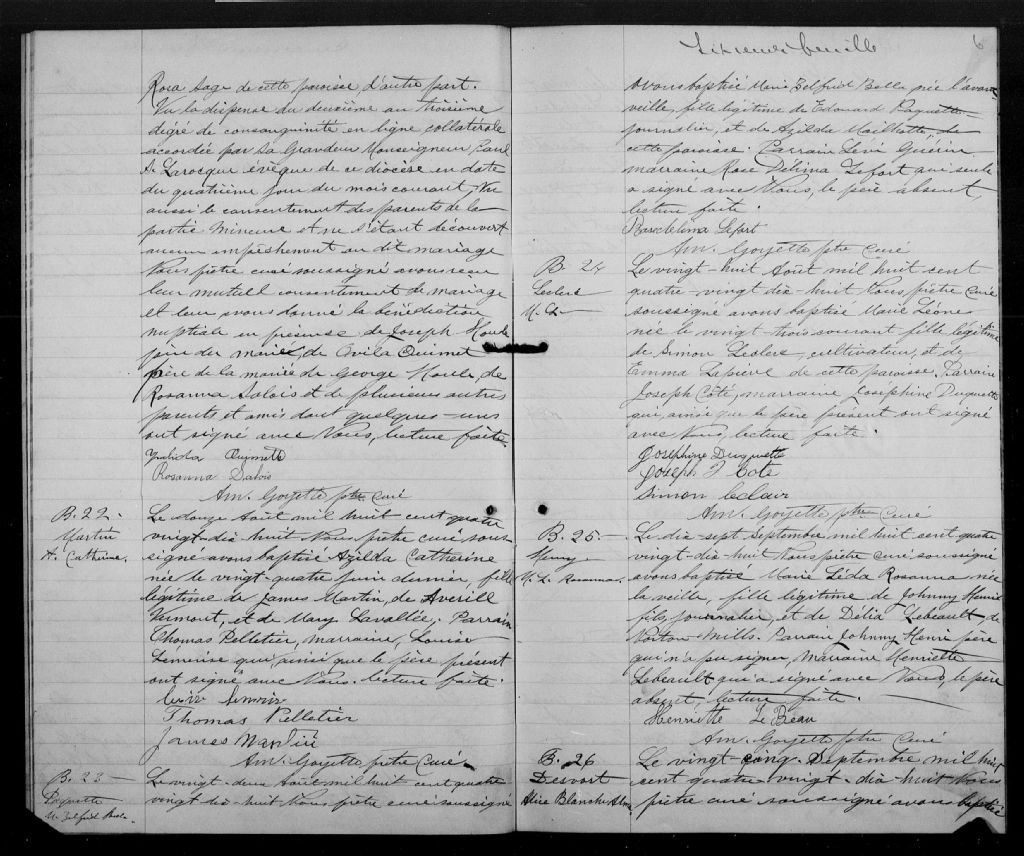 Rosa Sage de cette paroisse d'autre part.
Vu la dispense du deuxième au troisième
dégré de consanguinité en ligne collatérale
accordée par Sa Grandeur Monseigneur Paul
S. Larocque évêque de ce diocèse en date
du quatrième jour du mois courant, Vu
aussi le consentement des parents de la
partie mineure et ne s'étant découvert
aucun empêchement au dit mariage
Nous prêtre curé soussigné avons reçu
leur mutuel consentement de mariage
et leur avons donné la bénédiction
nuptiale en présence de Joseph Houle
père du marié, de Ovila Ouimet
père de la mariée de George Houle, de
Rosanna Salois et de plusieurs autres
parents et amis dont quelques-uns
ont signé avec Nous, lecture faite.
Ouimette
Rosanna Salois
Am. Goyette ptre Curé
B. 22.
Martin
A. Catherine.
Le douze Août mil huit cent quatre
vingt-dix-huit Nous prêtre curé sous-
signé avons baptisé Azilda Catherine
née le vingt-quatre juin dernier, fille
légitime de James Martin, de Averill
Vermont, et de Mary Lavallée. Parrain
Thomas Pelletier, marraine, Louise
Lemerise qui, ainsi que le père présent
ont signé avec Nous. lecture faite.
Thomas Pelletier
James Martin
Am. Goyette ptre Curé
B. 23
Paquette
M. Zelfrid Bella.
Le vingt-deux Août mil huit cent quatre
vingt dix-huit Nous prêtre curé soussigné
Sixième feuille
6
avons baptisé Marie Zelfrid Bella née l'avant
veille, fille légitime de Edouard Paquette
journalier, et de Azilda Mailhotte, de
cette paroisse. Parrain Lévi Guérin
marraine Rose Délima Lefort qui seule
a signé avec Nous, le père absent,
lecture faite.
Rosedelima Lefort
Am. Goyette ptre Curé
B. 24
Leclerc
M. L.
Le vingt-huit Août mil huit cent
quatre-vingt dix-huit Nous prêtre curé
soussigné avons baptisé Marie Léone
née le vingt-trois courant fille légitime
de Simon Leclerc, cultivateur, et de
Emma Lapierre de cette paroisse, Parrain
Joseph Côté, marraine Joséphine Duquette
qui, ainsi que le père présent ont signé
avec Nous, lecture faite.
Josephine Duquette
Joseph Cote
Simon Leclair
Am. Goyette ptre Curé
B. 25.
Henry
M. L. Rosanna.
Le dix-sept Septembre mil huit cent quatre
vingt-dix-huit Nous prêtre curé soussigné
avons baptisé Marie Léda Rosanna née
la veille, fille légitime de Johnny Henri
fils, journalier, et de Délia Lebeault, de
Norton Mills. Parrain Johnny Henri père
qui n'a pu signer, Marraine Henriette
Lebeault qui a signé avec Nous, le père
absent, lecture faite.
Henriette Le Beau
Am. Goyette ptre Curé
B. 26
Alice Blanche Alma
Le vingt-cinq Septembre mil huit
cent quatre-vingt-dix-huit Nous
prêtre curé soussigné avons baptisé